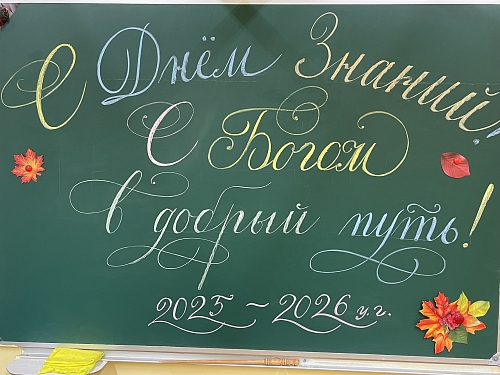 С Днём Знаний!
С Богом
в добрый путь!
2025 ~ 2026 у.г.